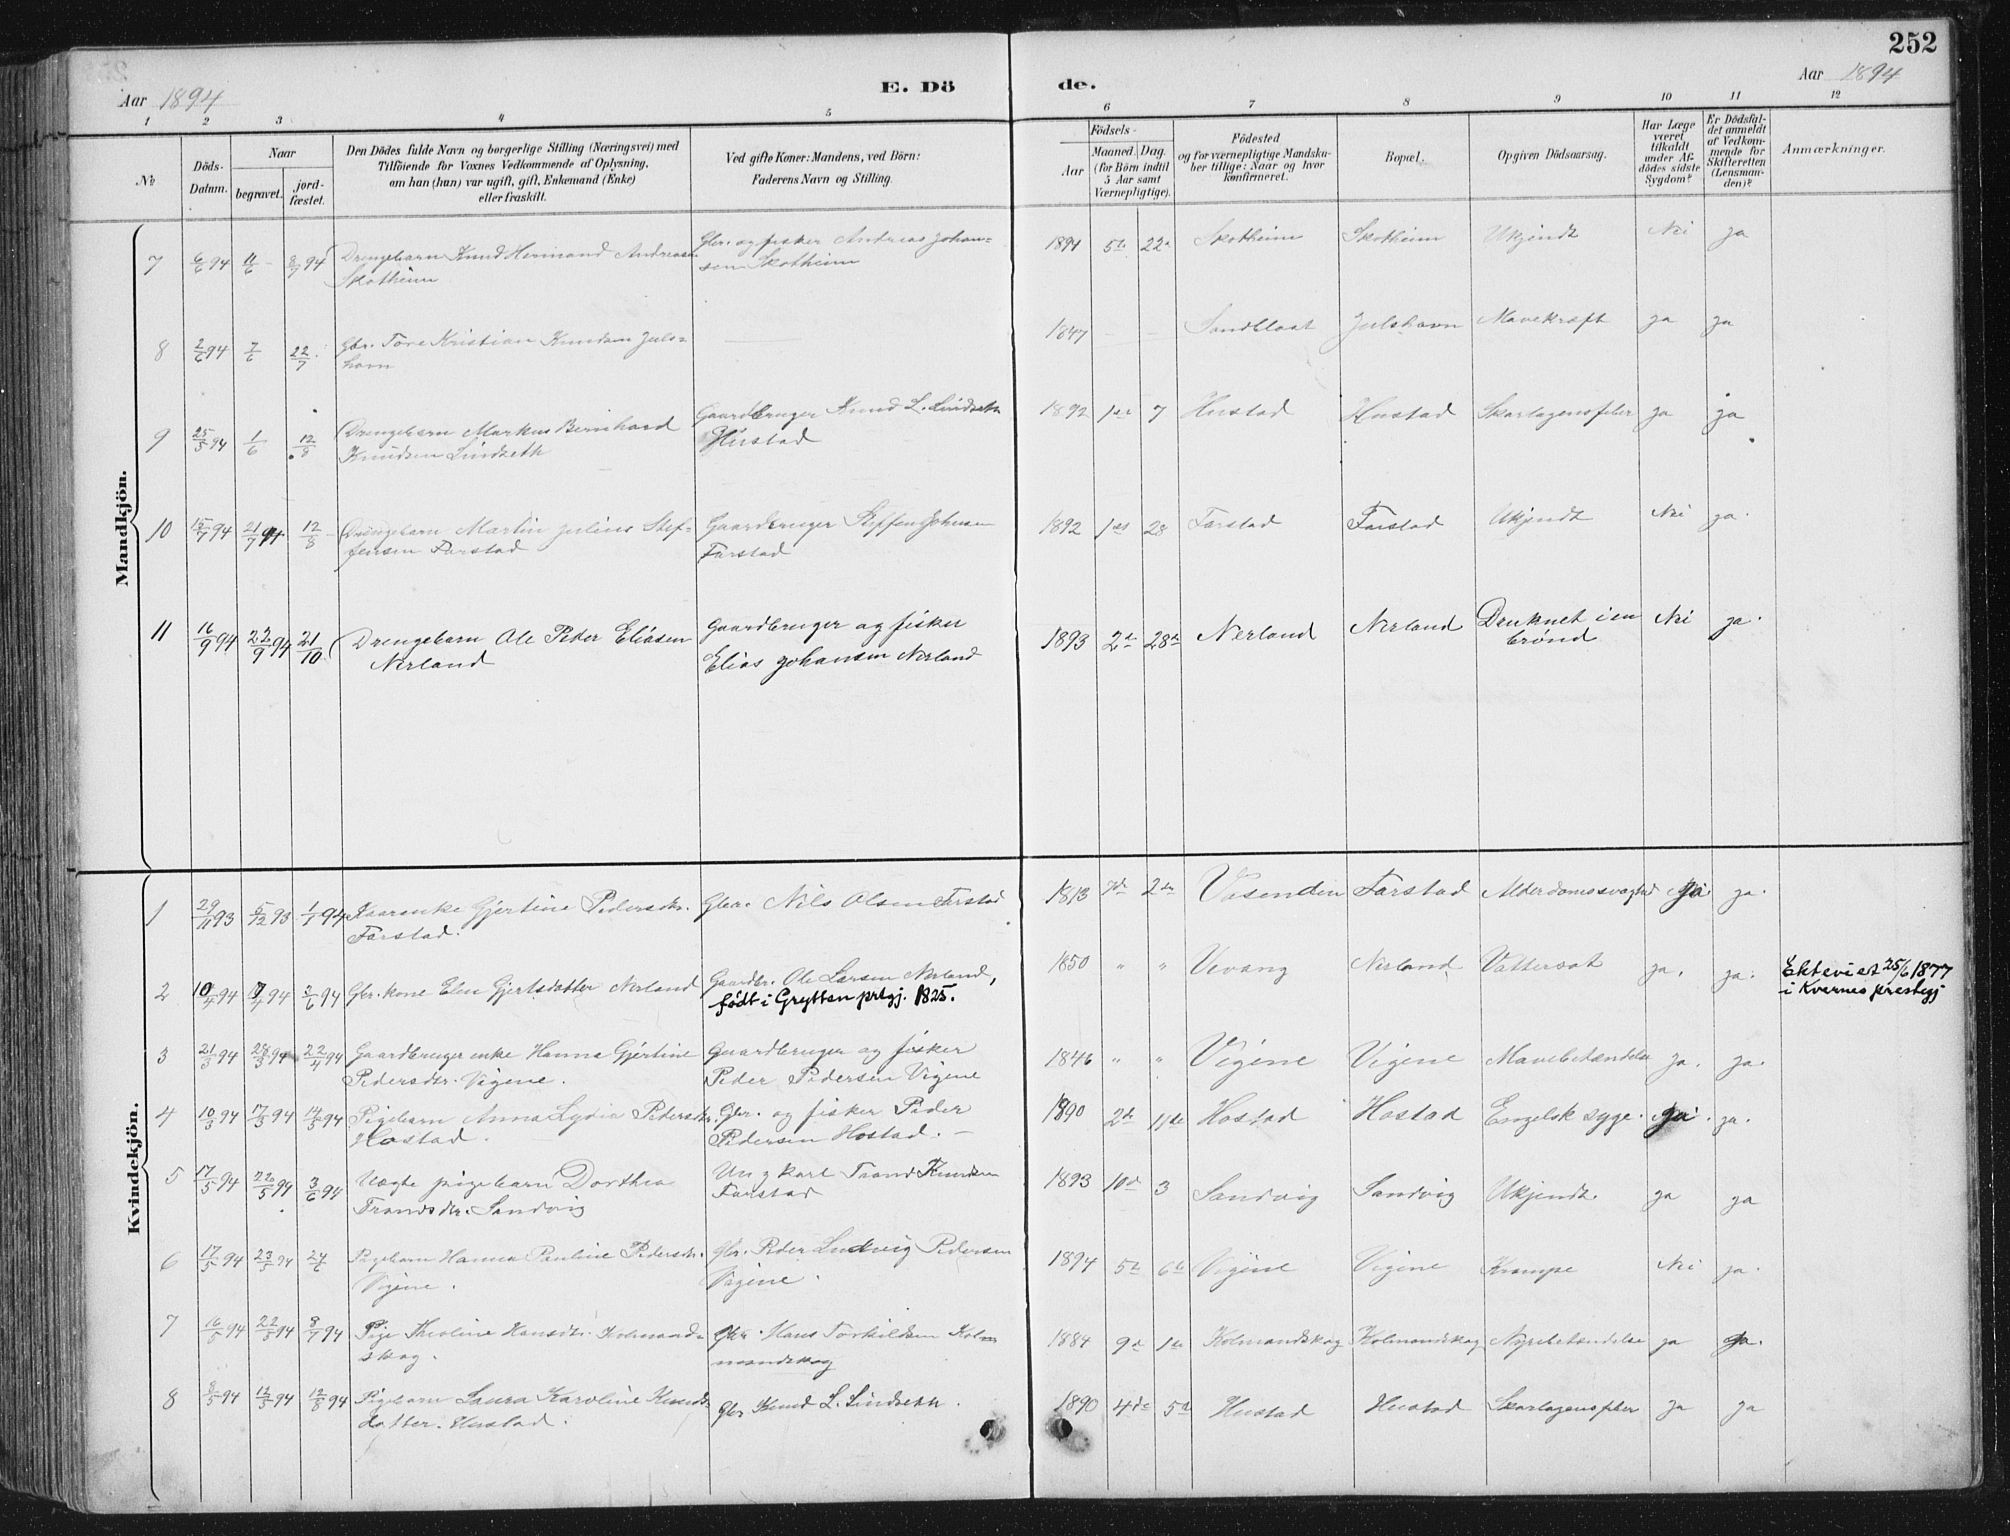 252
Aar 1894
E. Dö
de.
Aar 1894
1 2 3 4 5 6 7 8 9 10 11 12
No
Döds-
Datum.
Naar
begravet.
jord-
fæstet.
Den Dödes fulde Navn og borgerlige Stilling (Næringsvei) med
Tilföiende for Voxnes Vedkommende af Oplysning,
om han (hun) var ugift, gift, Enkemand (Enke)
eller fraskilt.
Ved gifte Koner: Mandens, ved Börn:
Faderens Navn og Stilling.
Födsels-
Aar
Maaned. Dag.
(for Börn indtil
5 Aar samt
Værnepligtige).
Födested
og for værnepligtige Mandska-
ber tillige: Naar og hvor
konfirmeret.
Bopæl.
Opgiven Dödsaarsag.
Har Læge
været
tilkaldt
under Af-
dödes sidste
Sygdom?
Er Dödsfal-
det anmeldt
af Vedkom-
mende for
Skifteretten
(Lensman-
den)?
Anmærkninger.
Mandkjön.
7 6/6 94 11/6 8/7 94 Drengebarn Knud Hermand Andreasen Gbr. og fisker Andreas Johan- 1894 5te 22de Skotheim Skotheim Ukjendt Nei ja
Skotheim sen Skotheim
8 2/6 94 7/6 22/7 Gbr. Tore Kristian Knudsen Juls- 1847 Sandblaat Julshavn Mavekræft ja ja
havn
9 25/5 94 1/6 12/8 Drengebarn Markus Bernhard Gaardbruger Knud L. Lindseth 1892 1ste 7 Hustad Hustad Skarlagensfeber ja ja
Knudsen Lindseth Hustad
10 15/7 94 21/7 94 12/8 Drengebarn Martin Julius Stef- Gaardbruger Steffen Johnsen 1892 1ste 28 Farstad Farstad Ukjendt Nei ja.
fensen Farstad Farstad
11 16/9 94 22/9 94 21/10 Drengebarn Ole Peder Eliasen Gaardbruger og fisker 1893 2de 28de Nerland Nerland Druknet i en Nei ja.
Nerland Elias Johansen Nerland brønd
Kvindekjön.
1 29/11 93 5/12 93 1/1 94 Kaarenke Gjertine Pedersdtr. Gbr. Nils Olsen Farstad 1813 7de 2den Visenden Farstad Alderdomssvaghed ja ja.
Farstad.
2 10/4 94 94 3/6 94 Gbr. kone Elen Gjertsdatter Nerland Gaardbr. Ole Larsen Nerland, 1850 " " Vevang Nerland Vattersot ja, ja. Ektevied 25/6 1877
født i Grytten prtgj. 1825. i Kvernes prestegj
3 21/3 94 28/3 94 22/4 94 Gaardbruger enke Hanna Gjertine Gaardbruger og fisker 1846 " " Vigene Vigene Mavebetændelse ja. ja.
Pedersdtr. Vigene. Peder Pedersen Vigene
4 10/3 94 17/3 94 14/5 94 Pigebarn Anna Lydia Pedersdtr. Gbr. og fisker Peder 1890 2de 11te Hostad Hostad Engelsk syge. ja. ja.
Hostad. Pedersen Hostad.
5 17/5 94 22/5 94 3/6 94 Uægte pigebarn Dorthea Ungkarl Trond Knudsen 1893 10de 3 Sandvig Sandvig Ukjendt. ja ja
Trondsdtr. Sandvig Farstad
6 17/5 94 23/5 94 24/6 Pigebarn Hanna Pauline Pedersdtr. Gbr. Peder Ludvig Pedersen 1894 5te 6te Vigene Vigene Krampe Nei ja.
Vigene. Vigene.
7 16/5 94 22/5 94 8/7 94 Pige Theoline Hansdtr. Kolmands- Gbr. Hans Torkildsen Kol- 1884 9de 1ste Kolmandskog Kolmandskog Nyrebetændelse ja ja.
skog. mandskog
8 8/5 94 12/5 94 12/8 94 Pigebarn Laura Karoline Knuds- Gbr Knud L. Lindseth. 1890 4de 5te Hustad Hustad Skarlagensfeber ja ja
datter. Hustad.